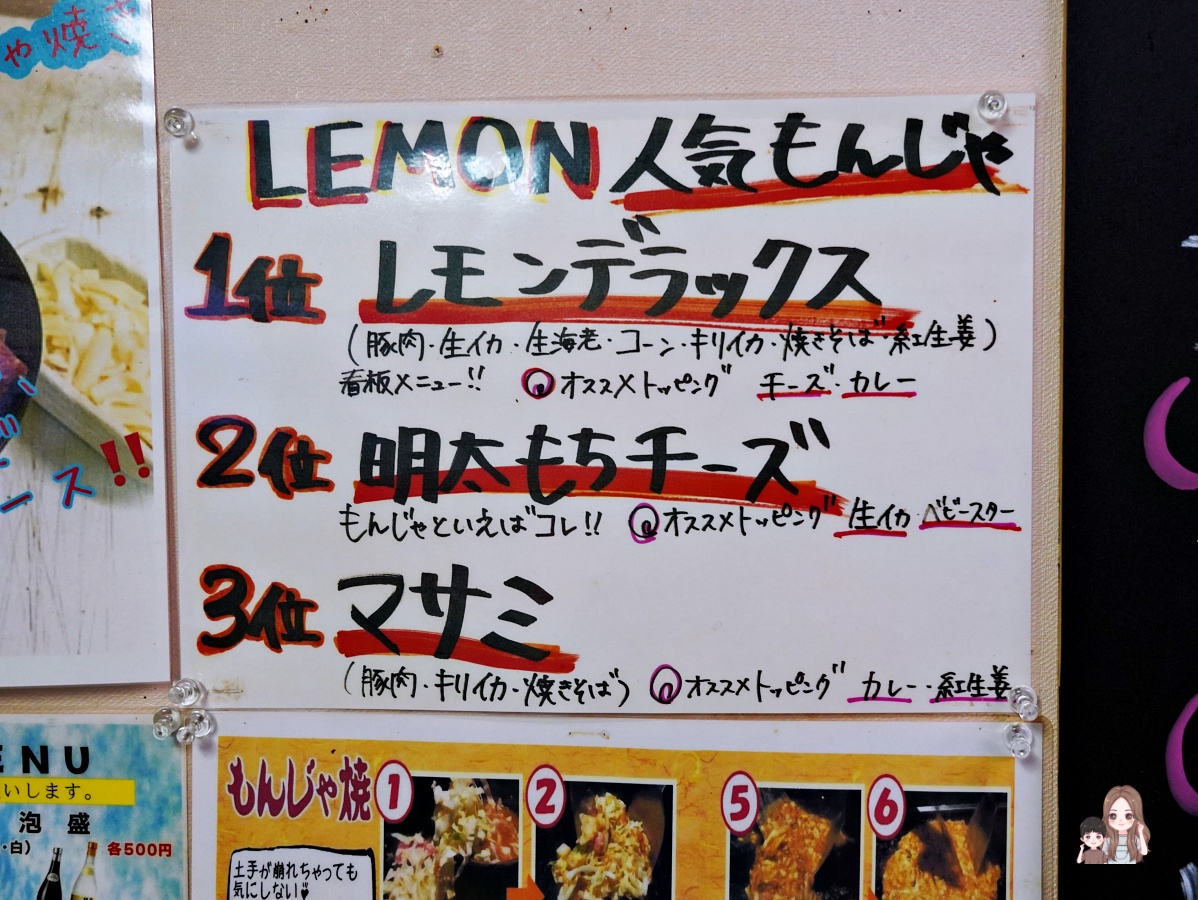 や焼き
LEMON 人気もんじゃ
1位 レモンデラックス
(豚肉・生イカ・生海老・コーン・キリイカ・焼きそば・紅生姜)
看板メニュー!! オススメトッピング チーズ・カレー
2位 明太もちチーズ
もんじゃといえばコレ!! オススメトッピング 生イカ ベビースター
3位 マサミ
(豚肉・キリイカ・焼きそば) オススメトッピング カレー・紅生姜
ース!!
ENU
いします。
泡盛
・白) 各500円
もんじゃ焼
1 2 5 6
土手が崩れちゃっても
気にしない♥